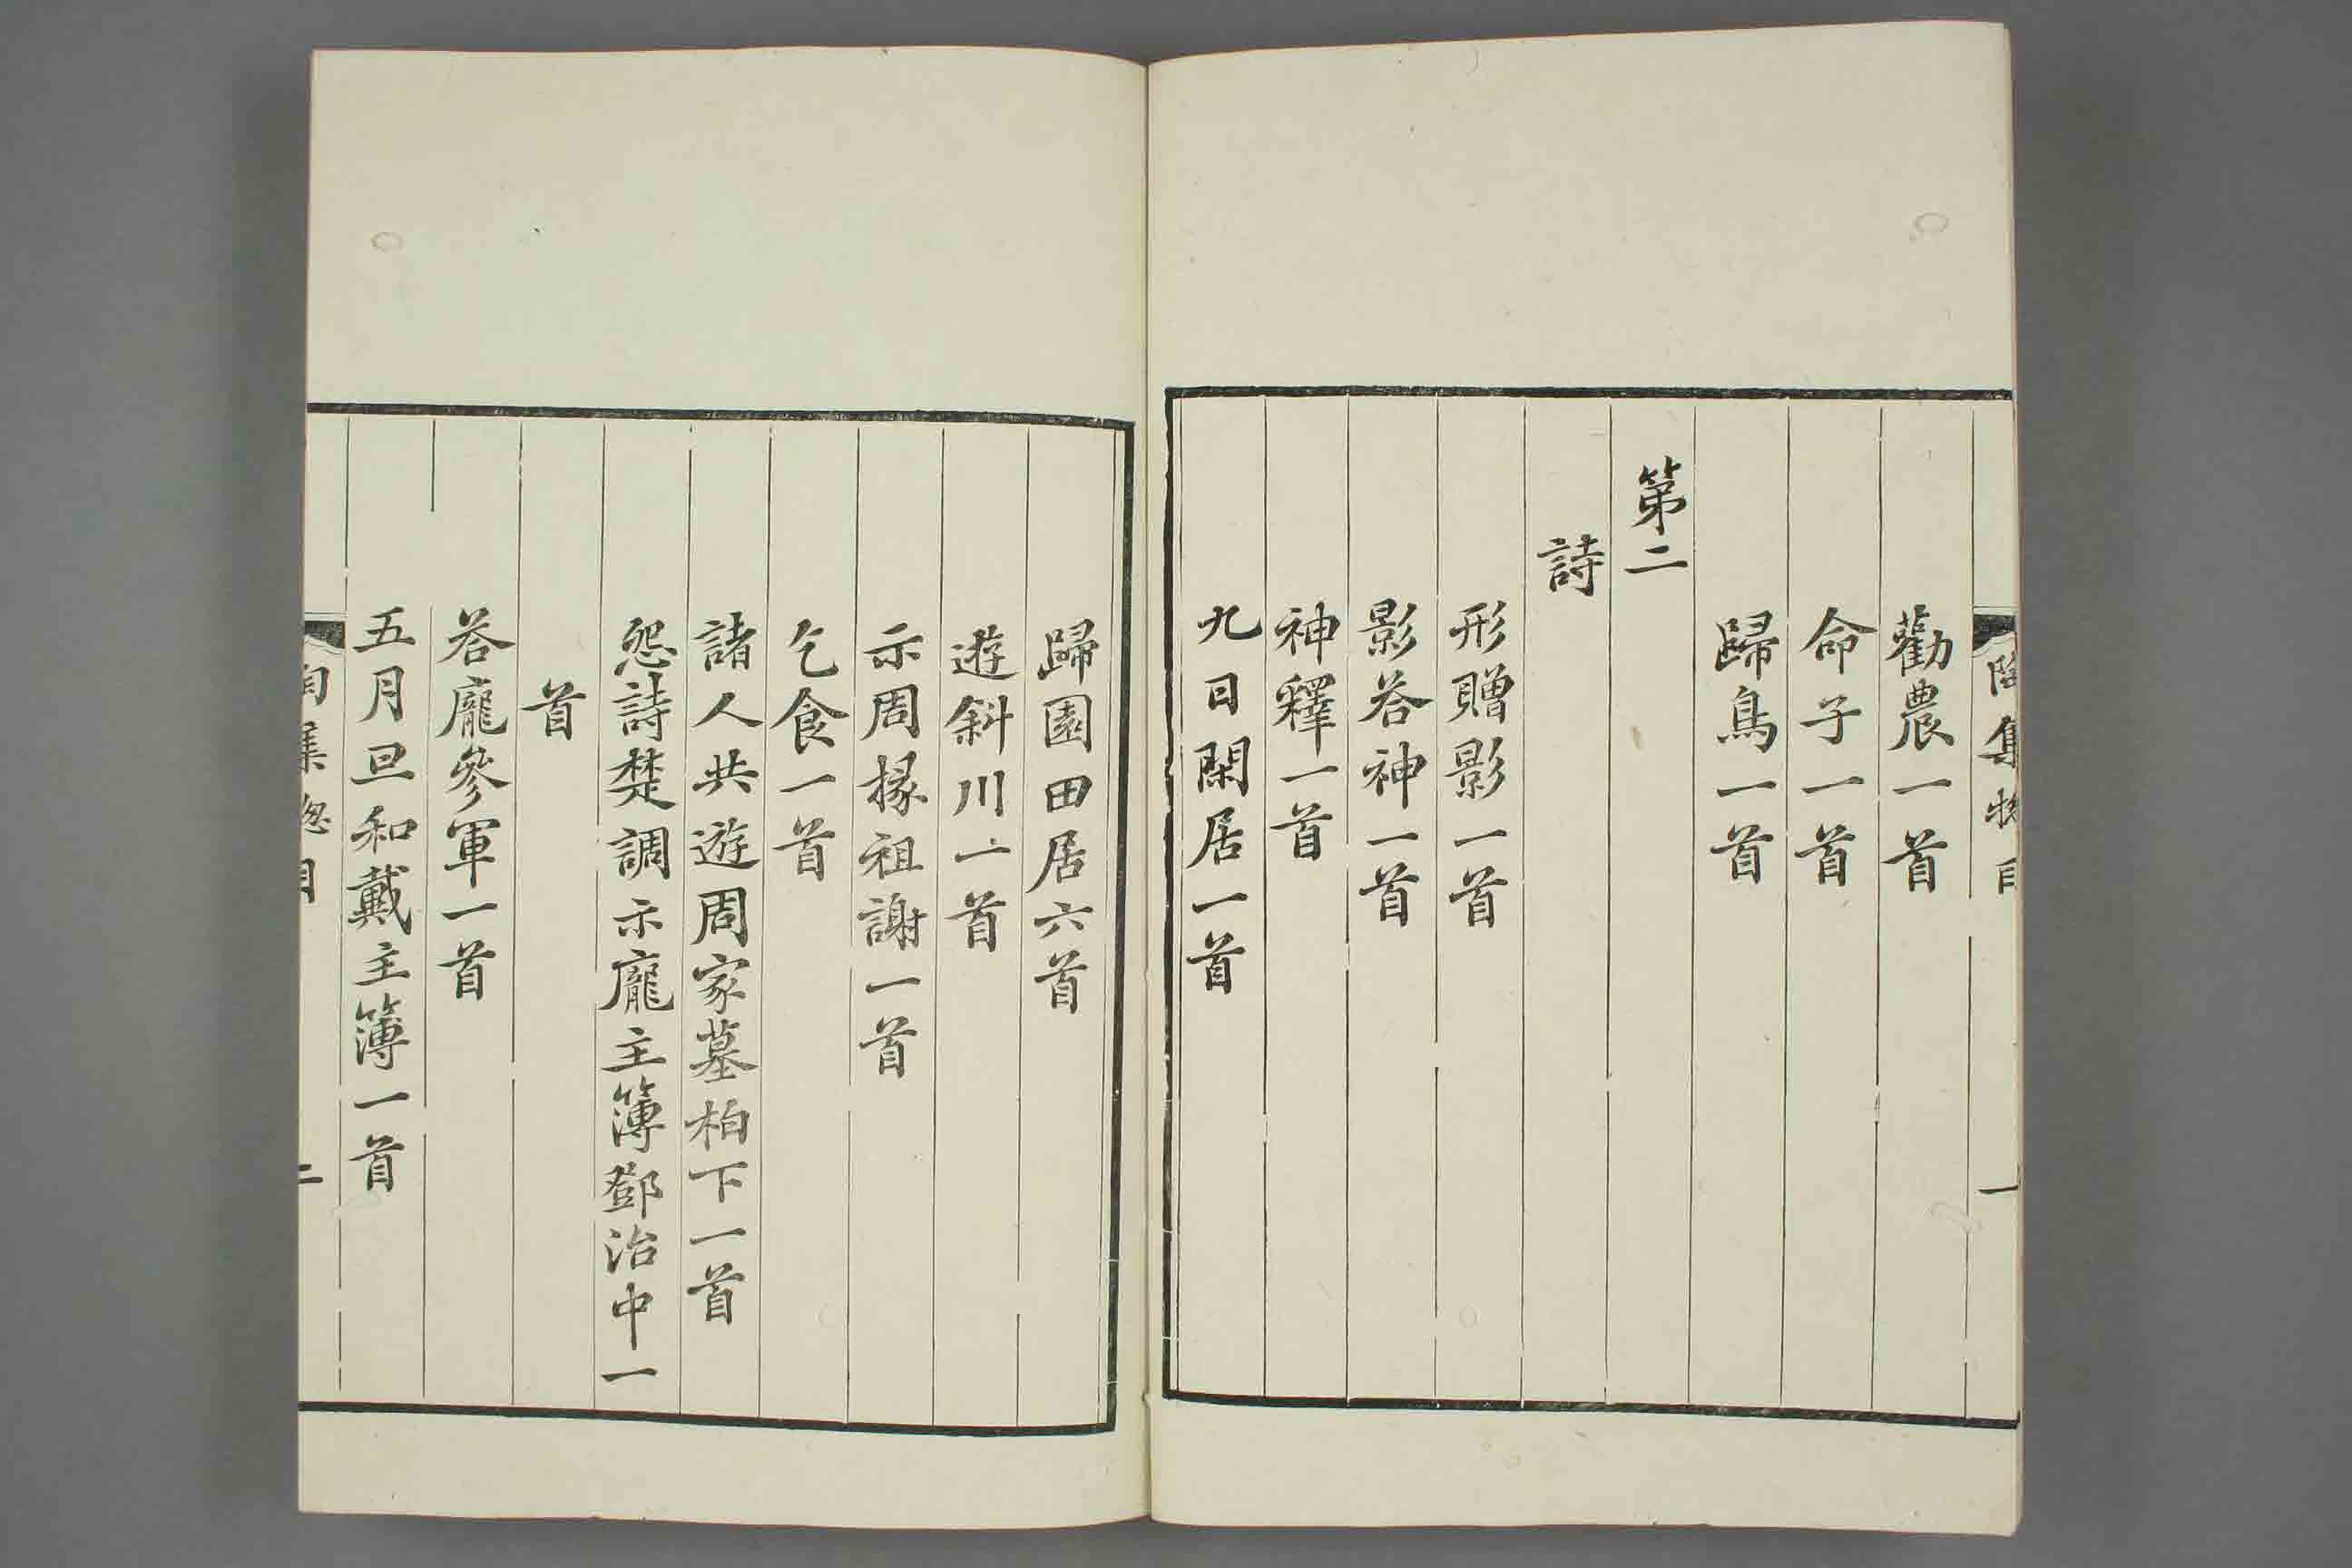 勸農一首
命子一首
歸鳥一首
第二
詩
形贈影一首
影荅神一首
神釋一首
九日閑居一首
歸園田居六首
遊斜川一首
示周掾祖謝一首
乞食一首
諸人共遊周家墓柏下一首
怨詩楚調示龐主簿鄧治中一
首
荅龐參軍一首
五月旦和戴主簿一首